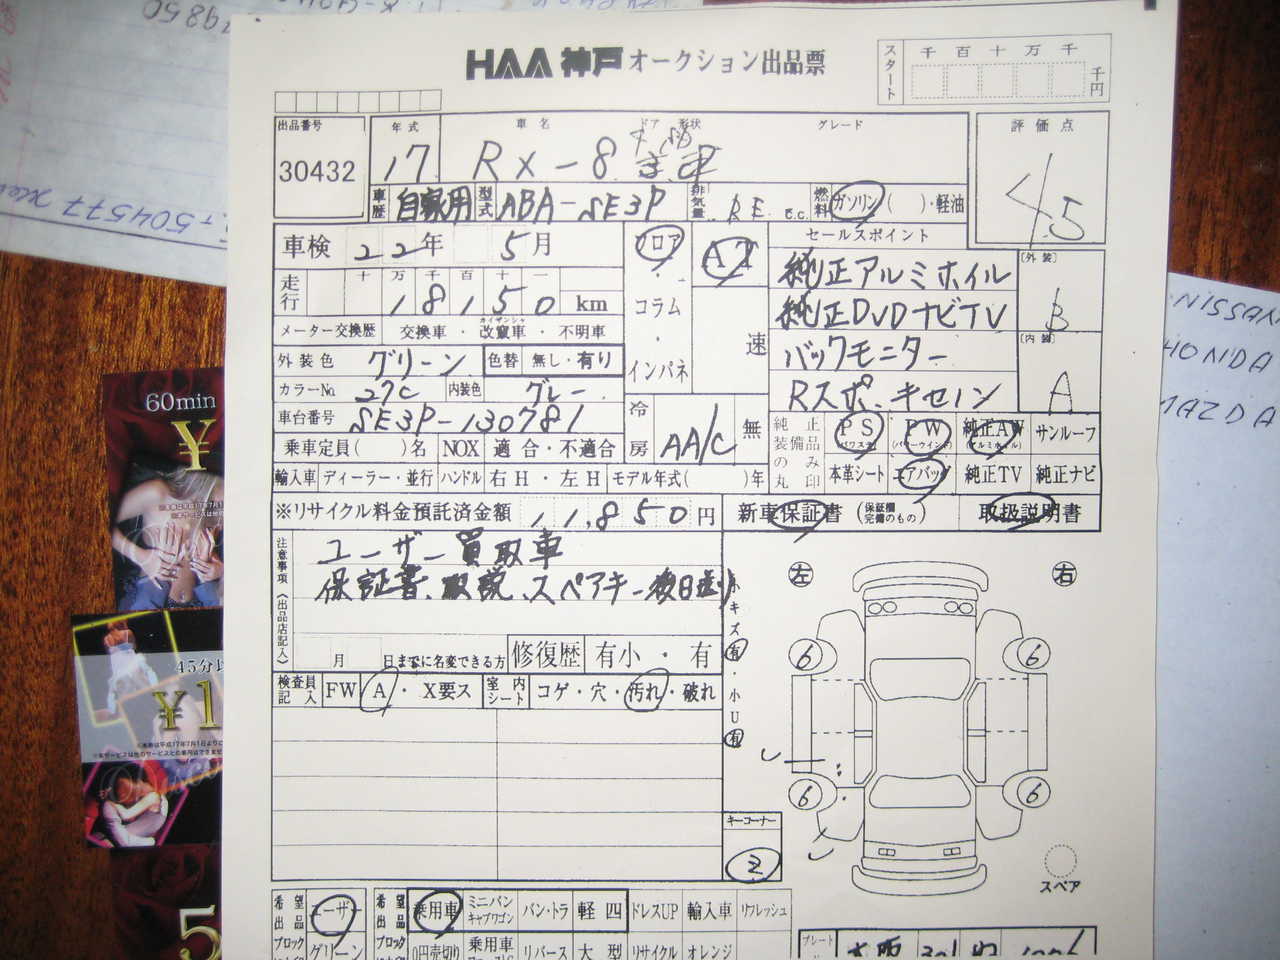 HAA神戸 オークション出品票
スタート 千 百 十 万 千 千円
出品番号 年式 車名 ドア 形状 グレード 評価点
30432 17 RX-8 4.5
車歴 自家用 型式 ABA-SE3P 排気量 RE c.c. 燃料 ガソリン( )・軽油
車検 22年 5月 フロア AT セールスポイント
純正アルミホイル [外装]
走行 十 万 千 百 十 一
18150 km コラム 純正DVDナビTV B
メーター交換歴 交換車・改竄車・不明車 カイザンシャ 速 [内装]
外装色 グリーン 色替 無し・有り インパネ バックモニター
カラーNo. 27C 内装色 グレー Rスポ、キセノン A
車台番号 SE3P-130781 冷房 AA/C 無 純正装備品のみ丸印 PS (パワステ) PW (パワーウインド) 純正AW (アルミホイル) サンルーフ
乗車定員( )名 NOX 適合・不適合
輸入車 ディーラー・並行 ハンドル 右H・左H モデル年式( )年 本革シート エアバッグ 純正TV 純正ナビ
※リサイクル料金預託済金額 11,850円 新車保証書 (保証欄完備のもの) 取扱説明書
注意事項(出品店記入) ユーザー買取車
保証書、取説、スペアキー後日送り
左 右
キズ有・小U有
月 日までに名変できる方 修復歴 有小・有
6 6
検査員記入 FW A・X要ス 室内シート コゲ・穴・汚れ・破れ
6 6
キーコーナー
2
スペア
希望出品ブロック ユーザー 希望出品ブロック 乗用車 ミニバン キャブワゴン バン・トラ 軽四 ドレスUP 輸入車 リフレッシュ
グリーン 0円売切り 乗用車 リバース 大型 リサイクル オレンジ
プレート 大阪 301
60min
¥
45分
¥1
5
504577
9850
NISSAN
HONDA
MAZDA